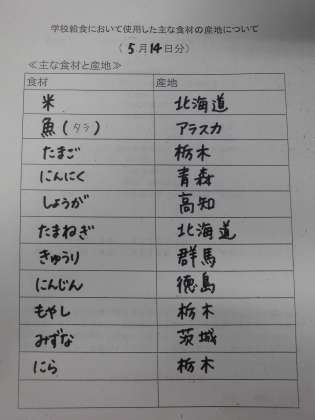 学校給食において使用した主な食材の産地について
（ 5月14日分）
≪主な食材と産地≫
食材 産地
米 北海道
魚(タラ) アラスカ
たまご 栃木
にんにく 青森
しょうが 高知
たまねぎ 北海道
きゅうり 群馬
にんじん 徳島
もやし 栃木
みずな 茨城
にら 栃木